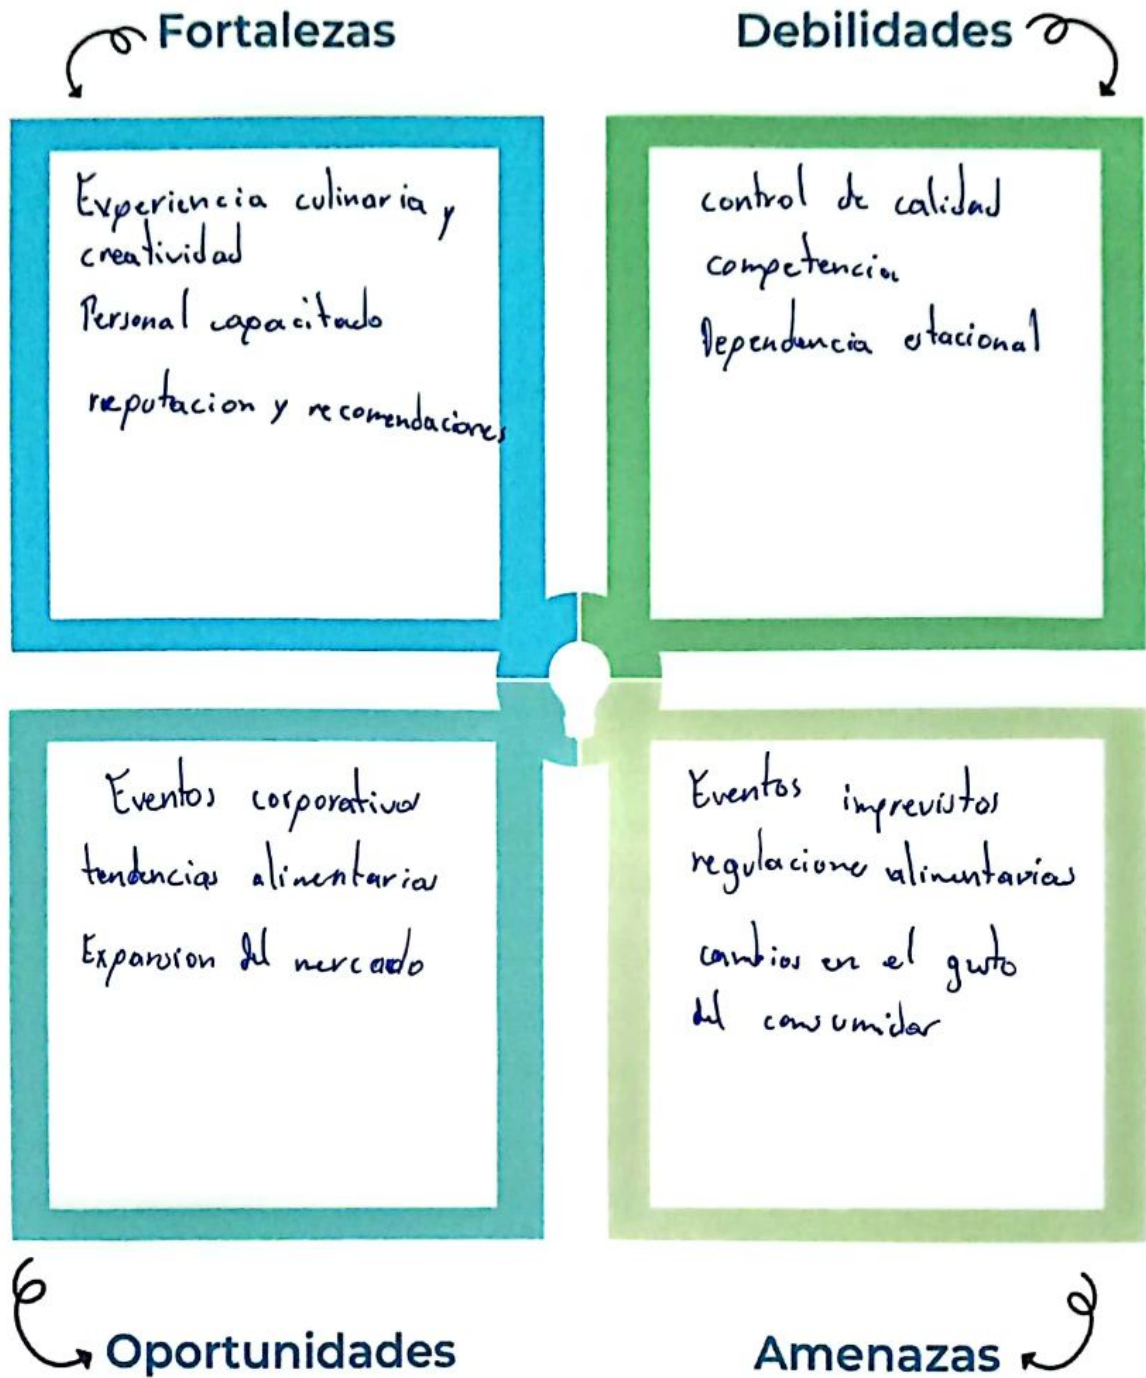 Fortalezas
Experiencia culinaria y
creatividad
Personal capacitado
reputacion y recomendaciones
Debilidades
control de calidad
competencia
Dependencia estacional
Eventos corporativos
tendencias alimentarias
Expansion del mercado
Oportunidades
Eventos imprevistos
regulaciones alimentarias
cambios en el gusto
del consumidor
Amenazas